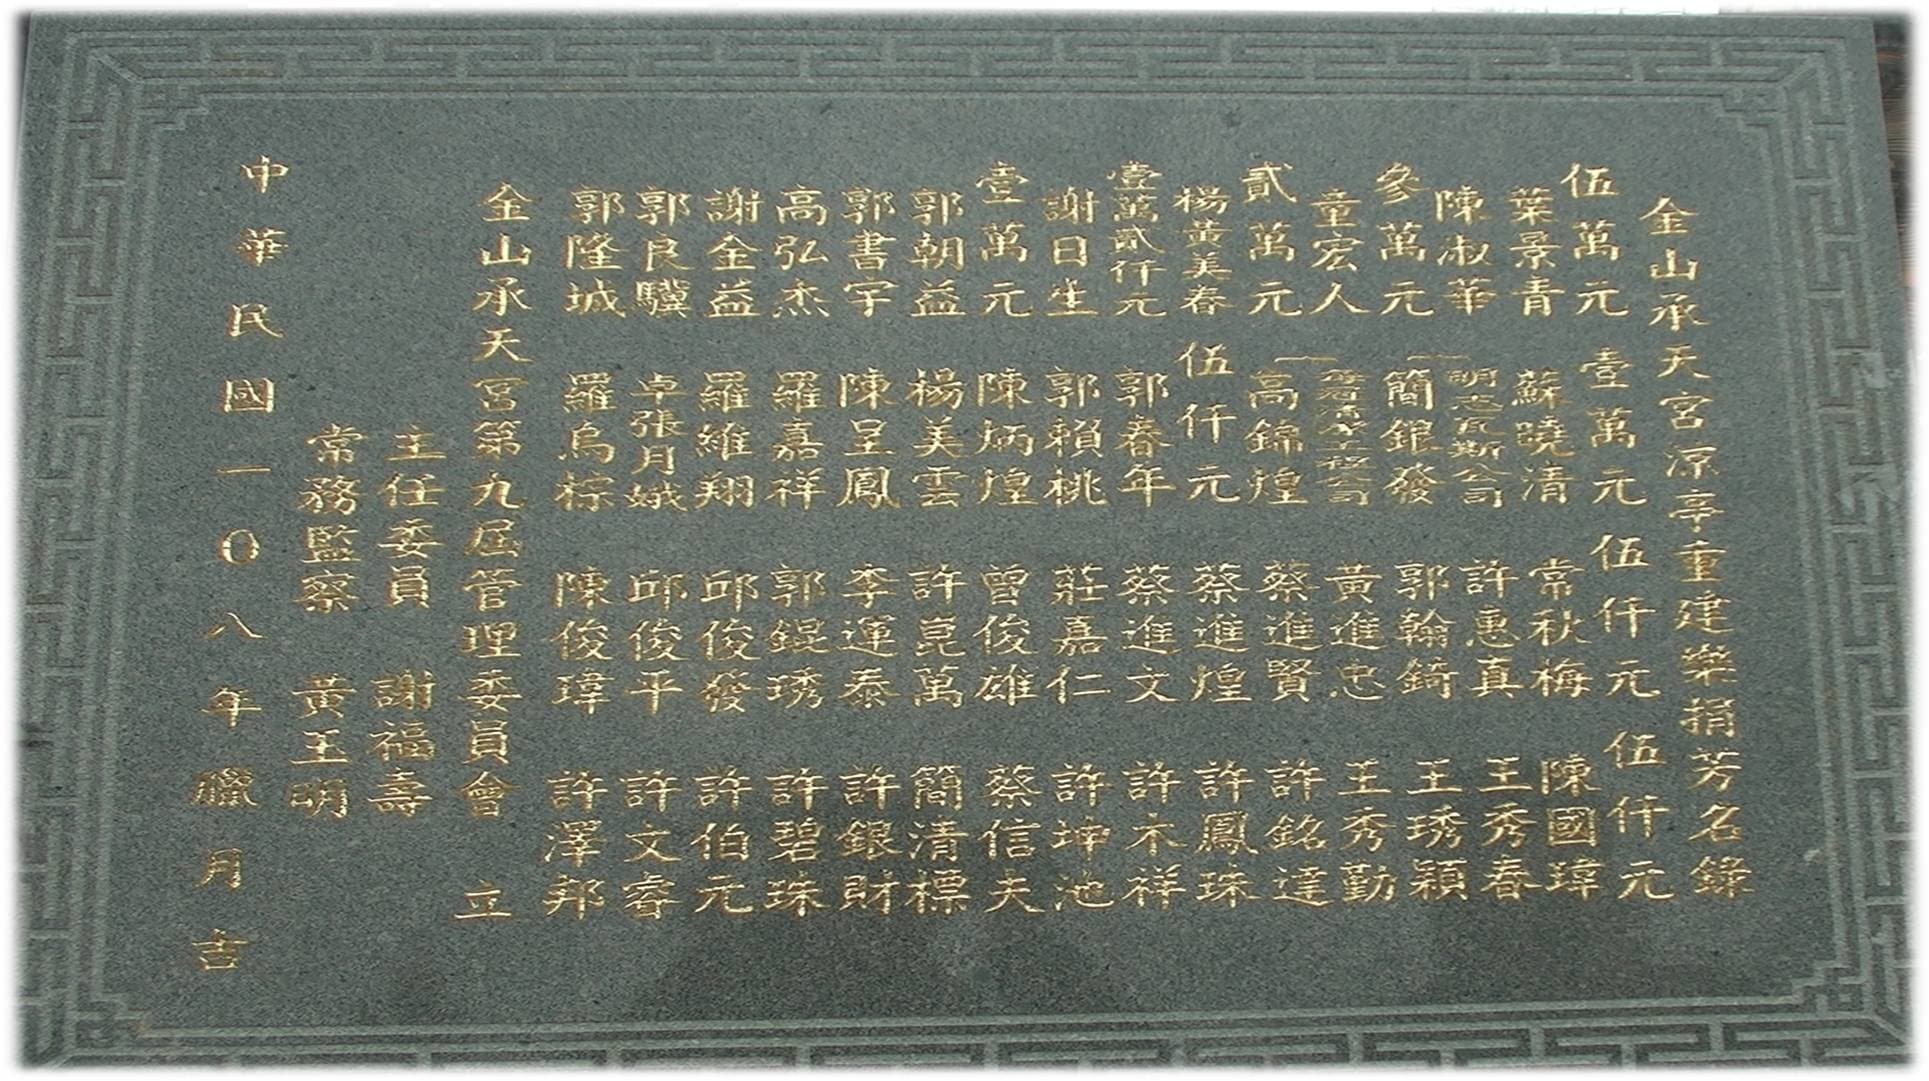 金山承天宮涼亭重建樂捐芳名錄
伍萬元 壹萬元 伍仟元 伍仟元
葉景青 蘇曉清 常秋梅 陳國瑋
陳淑華 明志瓦斯公司 許惠真 王秀春
參萬元 簡銀發 郭翰錡 王琇穎
童宏人 黃進忠 王秀勤
貳萬元 高錦煌 蔡進賢 許銘達
楊黃美春 伍仟元 蔡進煌 許鳳珠
壹萬貳仟元 郭春年 蔡進文 許木祥
謝日生 郭賴桃 莊嘉仁 許坤池
壹萬元 陳炳煌 曾俊雄 蔡信夫
郭朝益 楊美雲 許崑萬 簡清標
郭書宇 陳呈鳳 李運泰 許銀財
高弘杰 羅嘉祥 郭錕琇 許碧珠
謝金益 羅維翔 邱俊發 許伯元
郭良驥 卓張月娥 邱俊平 許文睿
郭隆城 羅烏棕 陳俊瑋 許澤邦
金山承天宮第九屆管理委員會 立
主任委員 謝福壽
常務監察 黃玉明
中華民國一0八年臘月吉